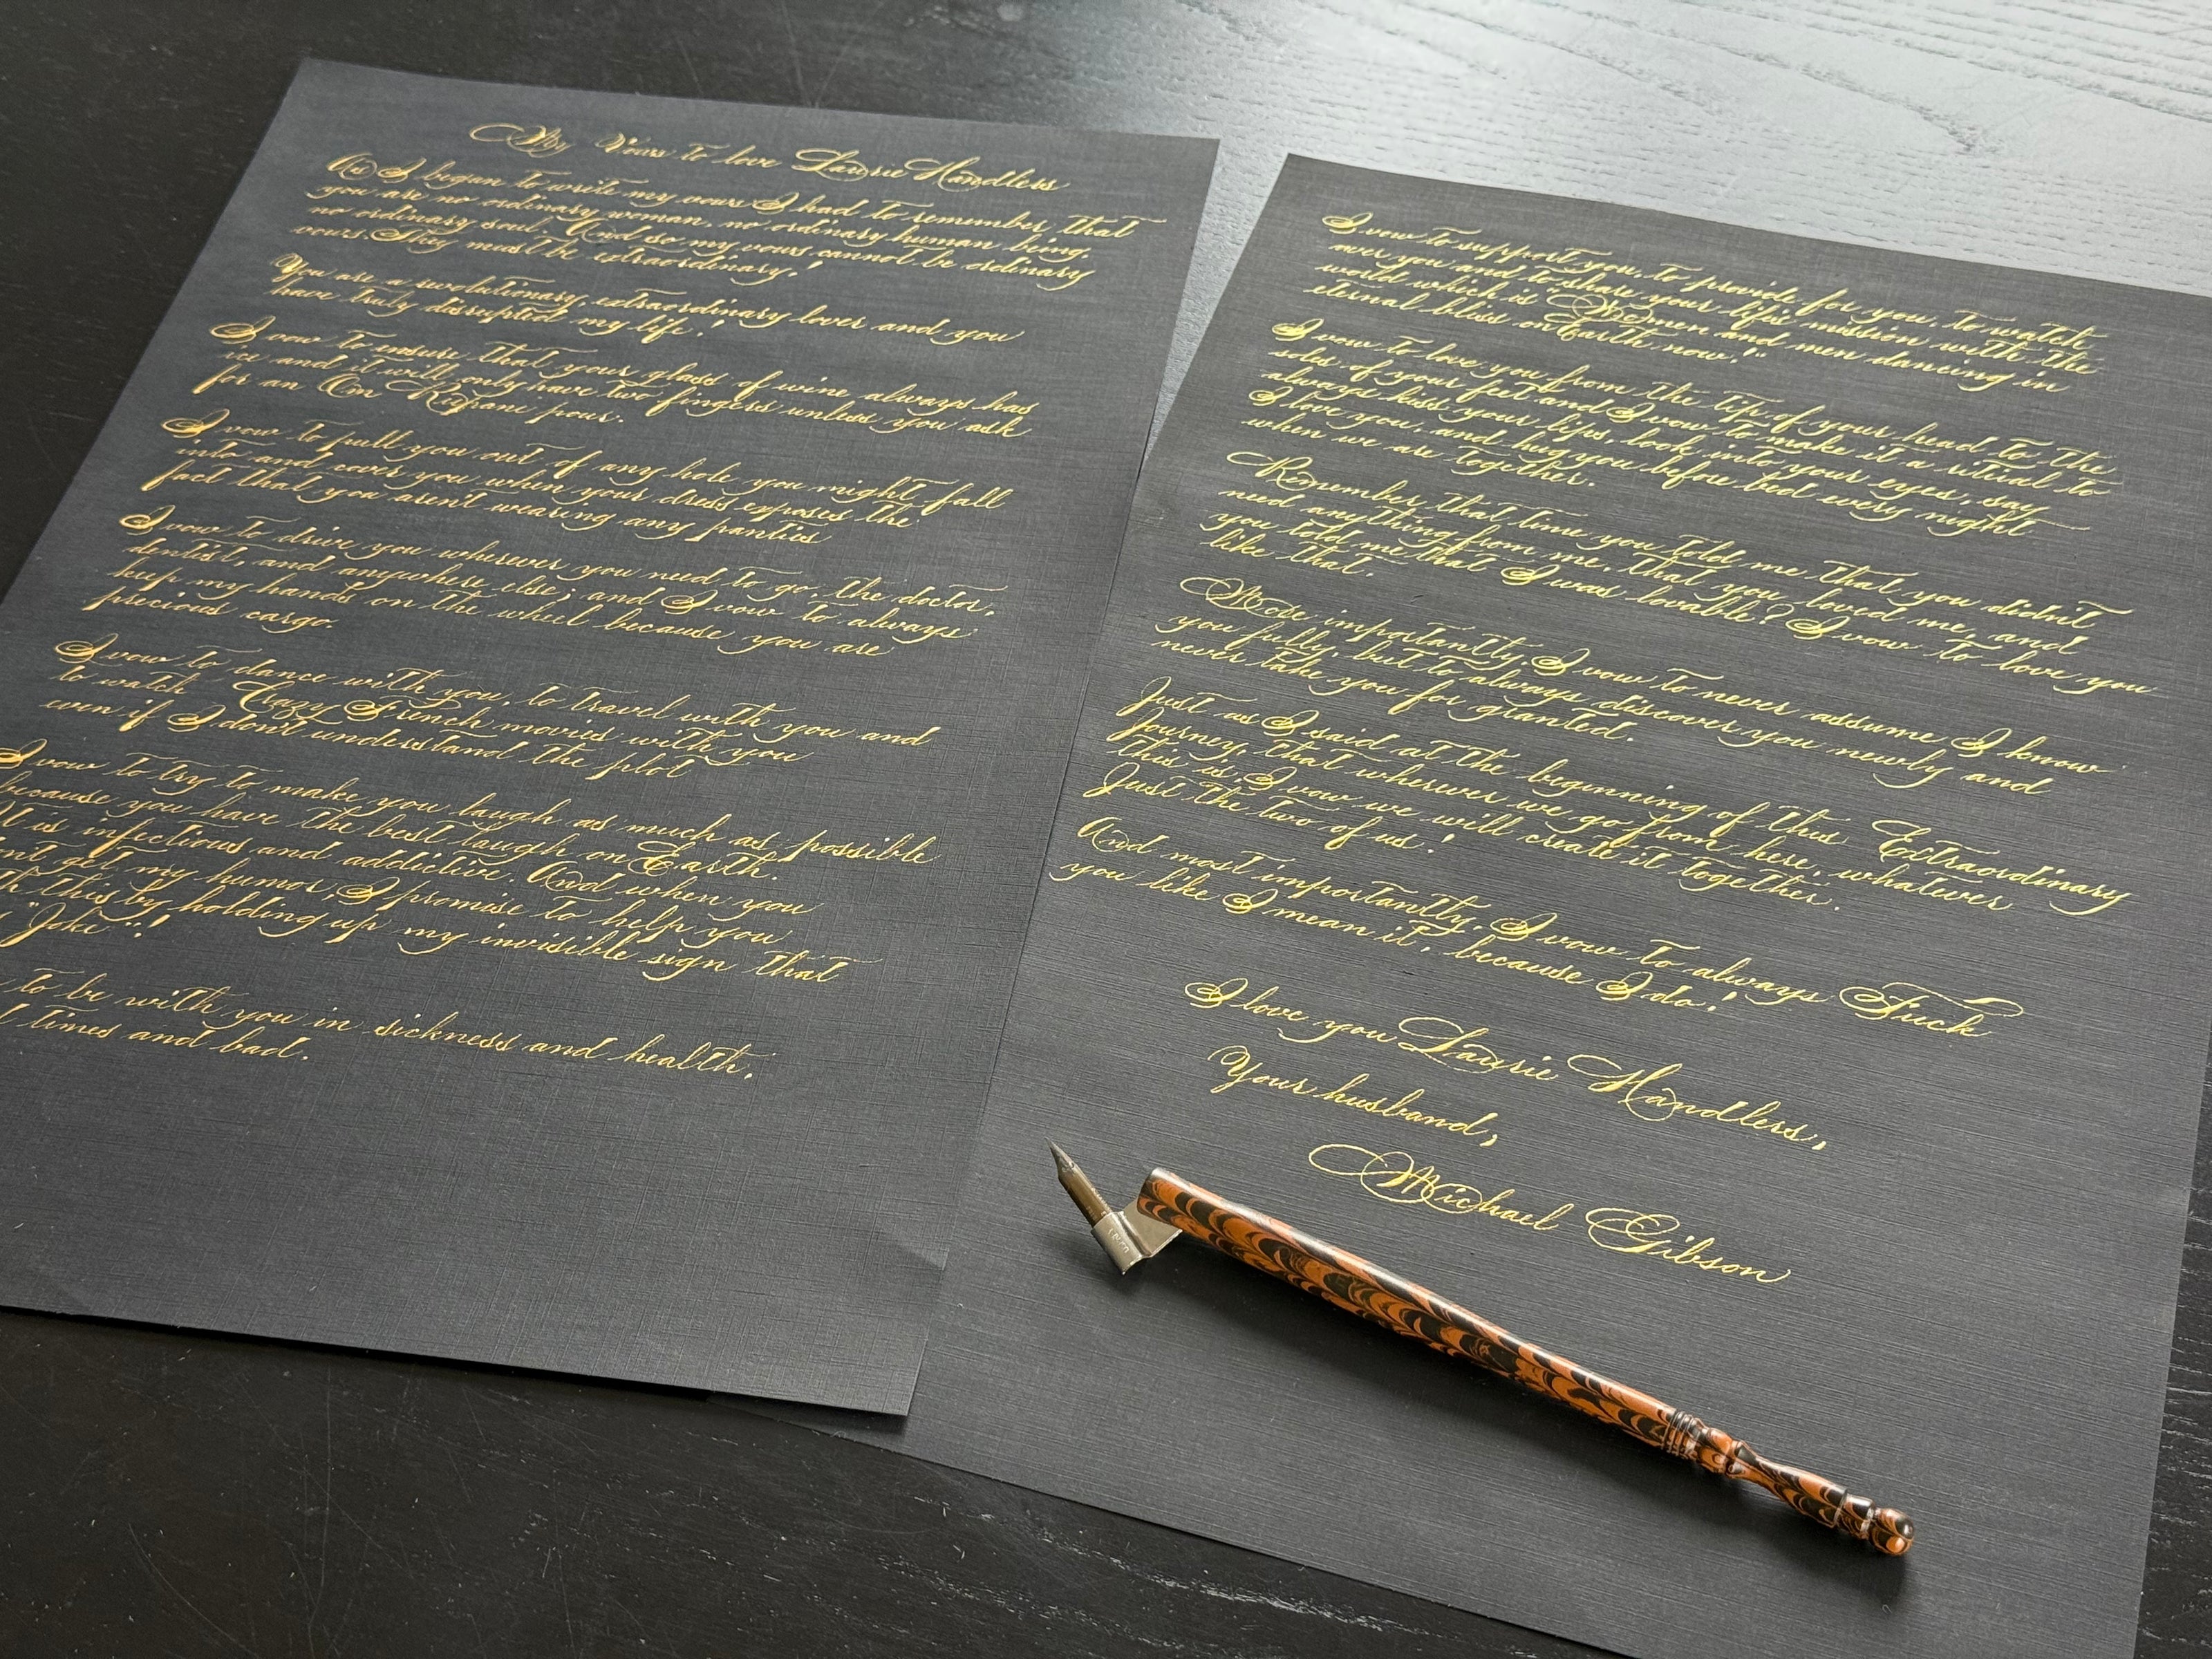 My Vows to love Laurie Handlers
As I began to write my vows I had to remember that
you are no ordinary woman, no ordinary human being,
no ordinary soul. And so my vows cannot be ordinary
vows. They must be extraordinary!
You are a revolutionary, extraordinary lover and you
have truly disrupted my life!
I vow to ensure that your glass of wine always has
ice and it will only have two fingers unless you ask
for an pour.
I vow to pull you out of any hole you might fall
into and cover you when your dress exposes the
fact that you aren't wearing any panties
I vow to drive you wherever you need to go, the doctor,
dentist, and anywhere else; and I vow to always
keep my hands on the wheel because you are
precious cargo.
I vow to dance with you, to travel with you and
to watch Crazy French movies with you
even if I don't understand the plot
I vow to try to make you laugh as much as possible
because you have the best laugh on Earth.
It is infectious and addictive. And when you
get my humor, I promise to help you
this by holding up my invisible sign that
"Joke"!
to be with you in sickness and health,
times and bad.
I vow to support you, to provide for you, to watch
over you and to share your life's mission with the
world which is "Women and men dancing in
eternal bliss on Earth now!"
I vow to love you from the tip of your head to the
soles of your feet and I vow to make it a ritual to
always kiss your lips, look into your eyes, say
I love you, and hug you before bed every night
when we are together.
Remember that time you told me that you didn't
need anything from me, that you loved me, and
you told me that I was lovable? I vow to love you
like that.
More importantly, I vow to never assume I know
you fully, but to always discover you newly and
never take you for granted.
Just as I said at the beginning of this Extraordinary
Journey, that wherever we go from here, whatever
this is, I vow we will create it together.
Just the two of us!
And most importantly, I vow to always Fuck
you like I mean it, because I do!
I love you Laurie Handlers,
Your husband,
Michael Gibson